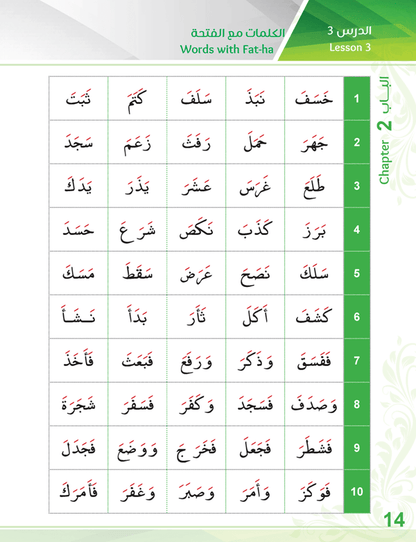 الدرس 3 الكلمات مع الفتحة
Lesson 3 Words with Fat-ha
الباب 2 Chapter
1 خَسَفَ نَبَذَ سَلَفَ كَتَمَ ثَبَتَ
2 جَهَرَ حَمَلَ رَفَثَ زَعَمَ سَجَدَ
3 طَلَعَ غَرَسَ عَشَرَ يَذَرَ يَدَكَ
4 بَرَزَ كَذَبَ نَكَصَ شَرَعَ حَسَدَ
5 سَلَكَ نَصَحَ عَرَضَ سَقَطَ مَسَكَ
6 كَشَفَ أَكَلَ ثَأَرَ بَدَأَ نَشَأَ
7 فَفَسَقَ وَذَكَرَ وَرَفَعَ فَبَعَثَ فَأَخَذَ
8 وَصَدَفَ فَسَجَدَ وَكَفَرَ فَسَفَرَ شَجَرَةَ
9 فَشَطَرَ فَجَعَلَ فَخَرَجَ وَوَضَعَ فَجَدَلَ
10 فَوَكَزَ وَأَمَرَ وَصَبَرَ وَغَفَرَ فَأَمَرَكَ
14